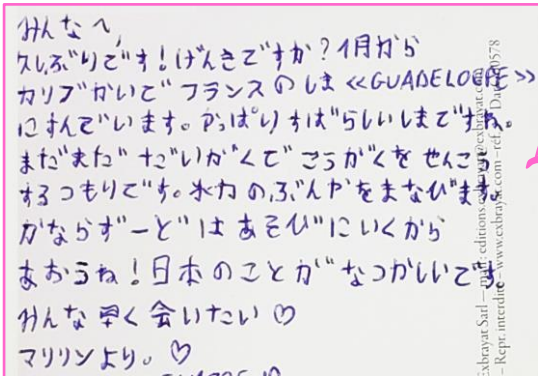 みんなへ,
久しぶりです！げんきですか？1月から
カリブかいで フランスのしま <<GUADELOUPE>>
にすんでいます。やっぱりすばらしいしまですね。
まだまだ だいがくで こうがくを せんこう
するつもりです。水力のぶんやをまなびます。
かならずーどはあそびにいくから
あおうね！日本のことが なつかしいです
みんな早く会いたい ♡
マリリンより。♡
Exbrayat Sarl – mail : editions.exbrayat@exbrayat.com
– Repr. interdite – www.exbrayat.com – réf.